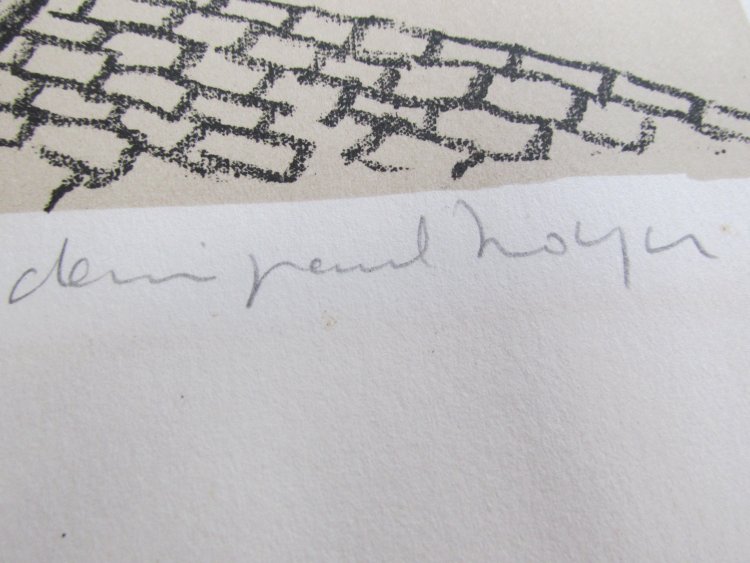 denis paul noyer